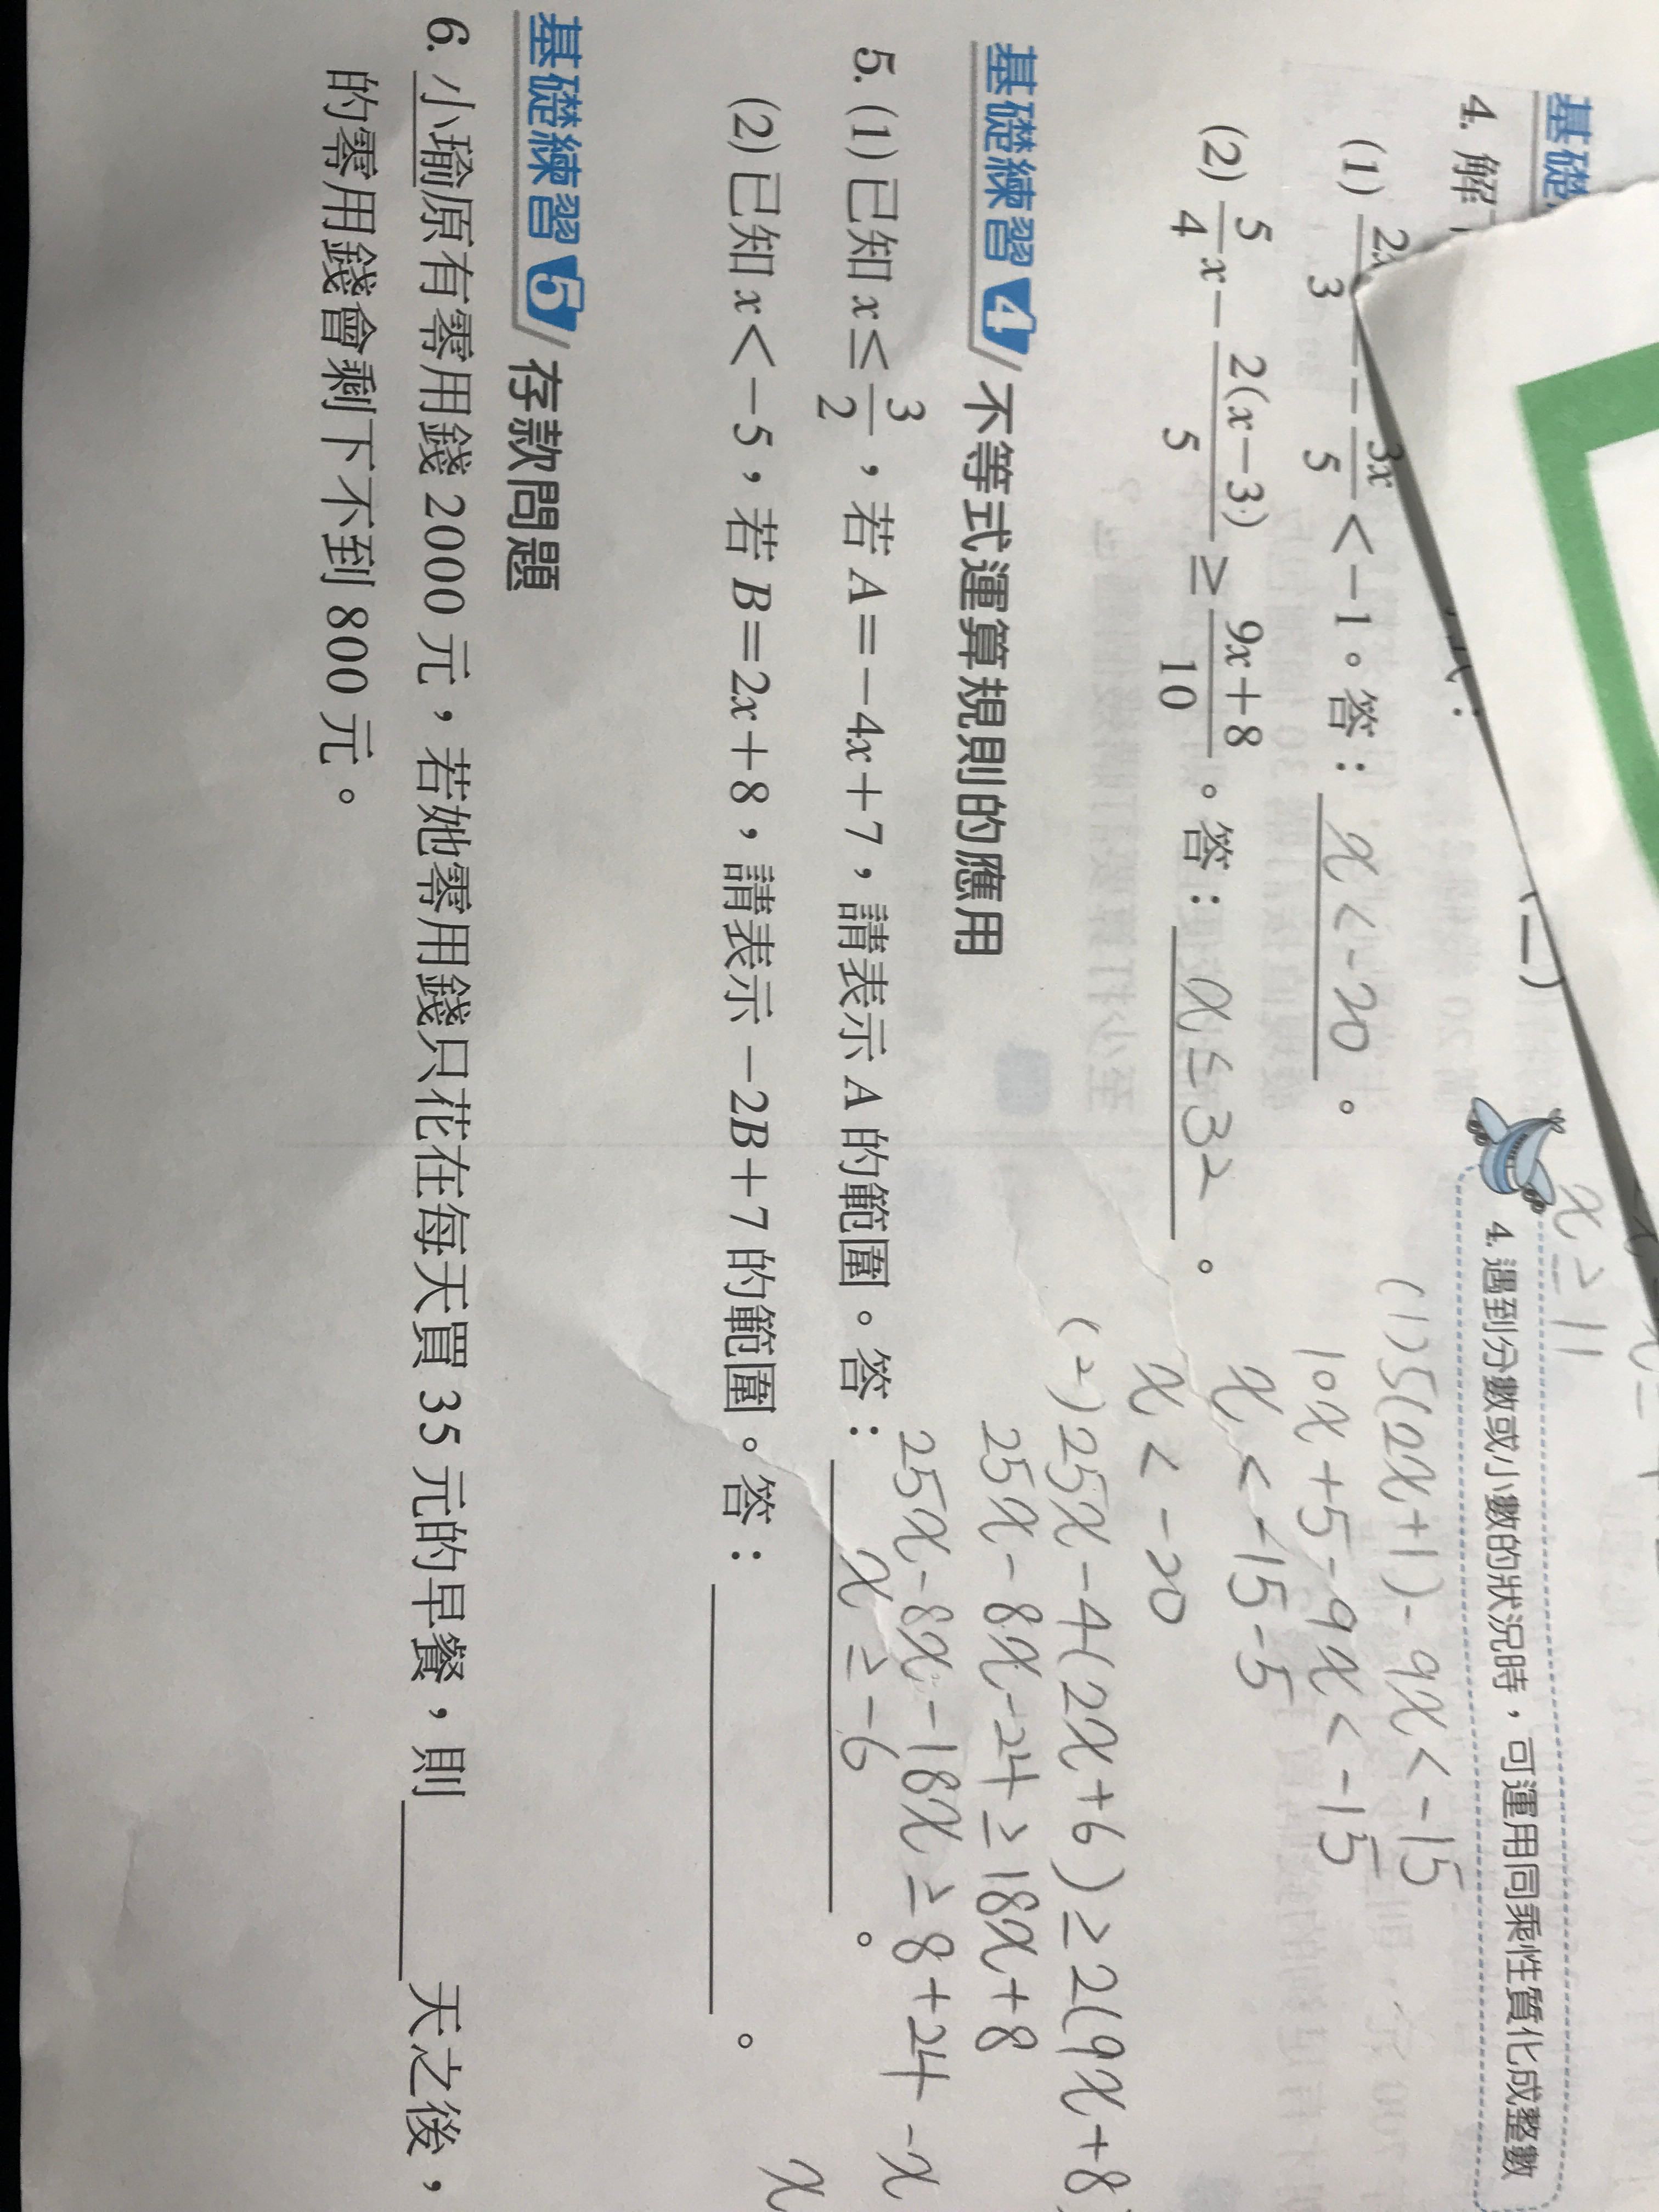 x≥11
基礎
4. 解
4. 遇到分數或小數的狀況時，可運用同乘性質化成整數
(1) 2x/3 - 3x/5 < -1。答：x<-20。
(1)5(2x+1)-9x<-15
10x+5-9x<-15
x<-15-5
x<-20
(2) 5/4 x - 2(x-3)/5 ≥ 9x+8/10。答：x≤32。
(2)25x-4(2x+6)≥2(9x+8)
25x-8x-24≥18x+8
25x-8x-18x≥8+24
-x
x
基礎練習 4 不等式運算規則的應用
5. (1) 已知 x≤3/2，若 A=-4x+7，請表示 A 的範圍。答：x≥-6。
(2) 已知 x<-5，若 B=2x+8，請表示 -2B+7 的範圍。答：。
基礎練習 5 存款問題
6. 小瑜原有零用錢 2000 元，若她零用錢只花在每天買 35 元的早餐，則天之後，
的零用錢會剩下不到 800 元。